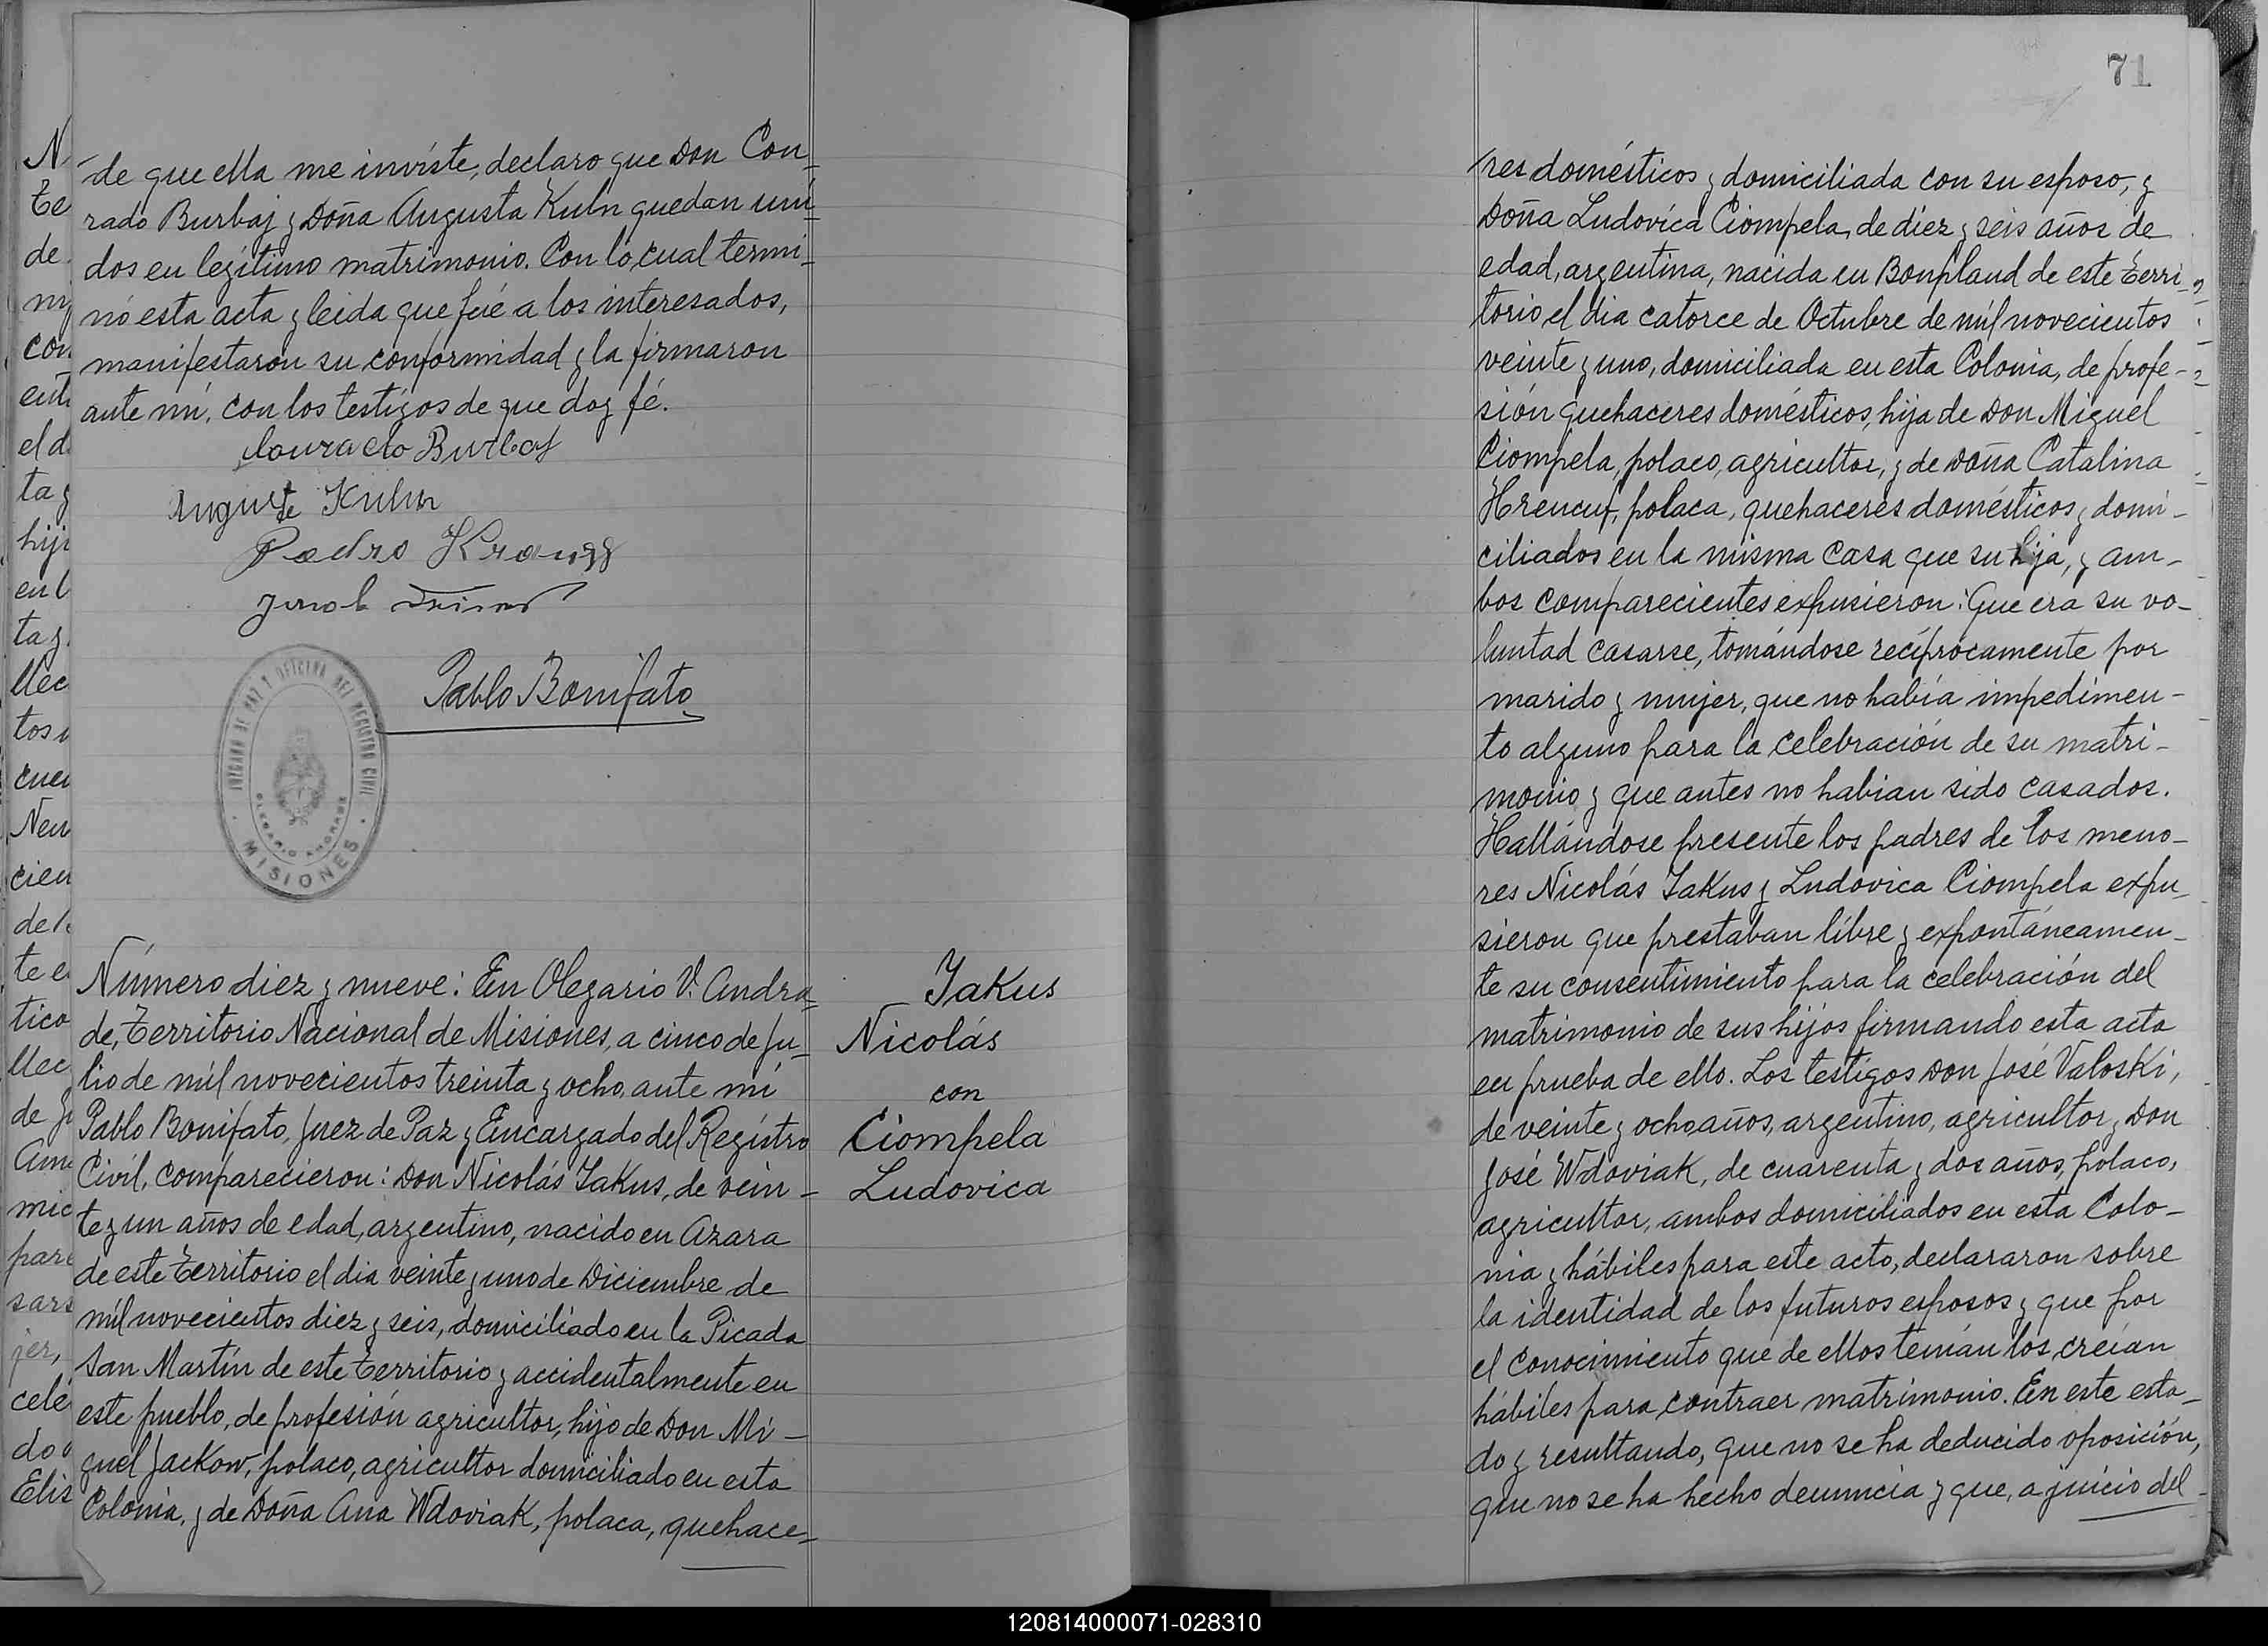 de que ella me inviste, declaro que Don Con-
rado Burbaj y Doña Augusta Kuhn quedan uni-
dos en legítimo matrimonio. Con lo cual termi-
nó esta acta y leida que fué a los interesados,
manifestaron su conformidad y la firmaron
ante mí, con los testigos de que doy fé.
Auguste Kuhn
Pedro
Pablo Bonifato
JUZGADO DE PAZ Y OFICINA DEL REGISTRO CIVIL
OLEGARIO ANDRADE
MISIONES
Número diez y nueve: En Olegario V. Andra-
de, Territorio Nacional de Misiones, a cinco de Ju-
lio de mil novecientos treinta y ocho, ante mí
Pablo Bonifato, Juez de Paz y Encargado del Registro
Civil, comparecieron: Don Nicolás Yakus, de vein-
te y un años de edad, argentino, nacido en Azara
de este Territorio el dia veinte y uno de Diciembre de
mil novecientos diez y seis, domiciliado en la Picada
San Martín de este Territorio y accidentalmente en
este pueblo, de profesión agricultor, hijo de Don Mi-
guel Jackow, polaco, agricultor domiciliado en esta
Colonia, y de Doña Ana Wdoviak, polaca, quehace-
Yakus
Nicolás
con
Ciompela
Ludovica
71
res domésticos y domiciliada con su esposo, y
Doña Ludovica Ciompela, de diez y seis años de
edad, argentina, nacida en Bonpland de este Terri-
torio el dia catorce de Octubre de mil novecientos
veinte y uno, domiciliada en esta Colonia, de profe-
sión quehaceres domésticos, hija de Don Miguel
Ciompela, polaco, agricultor, y de Doña Catalina
polaca, quehaceres domésticos y domi-
ciliados en la misma casa que su hija, y am-
bos comparecientes expusieron: Que era su vo-
luntad casarse, tomándose recíprocamente por
marido y mujer, que no había impedimen-
to alguno para la celebración de su matri-
monio y que antes no habian sido casados.
Hallándose presente los padres de los meno-
res Nicolás Yakus y Ludovica Ciompela expu-
sieron que prestaban libre y expontáneamen-
te su consentimiento para la celebración del
matrimonio de sus hijos firmando esta acta
en prueba de ello. Los testigos Don José Valoski,
de veinte y ocho años, argentino, agricultor y Don
José Wdoviak, de cuarenta y dos años, polaco,
agricultor, ambos domiciliados en esta Colo-
nia y hábiles para este acto, declararon sobre
la identidad de los futuros esposos y que por
el conocimiento que de ellos tenían los creían
hábiles para contraer matrimonio. En este esta-
do y resultando, que no se ha deducido oposición,
que no se ha hecho denuncia y que, a juicio del
120814000071-028310